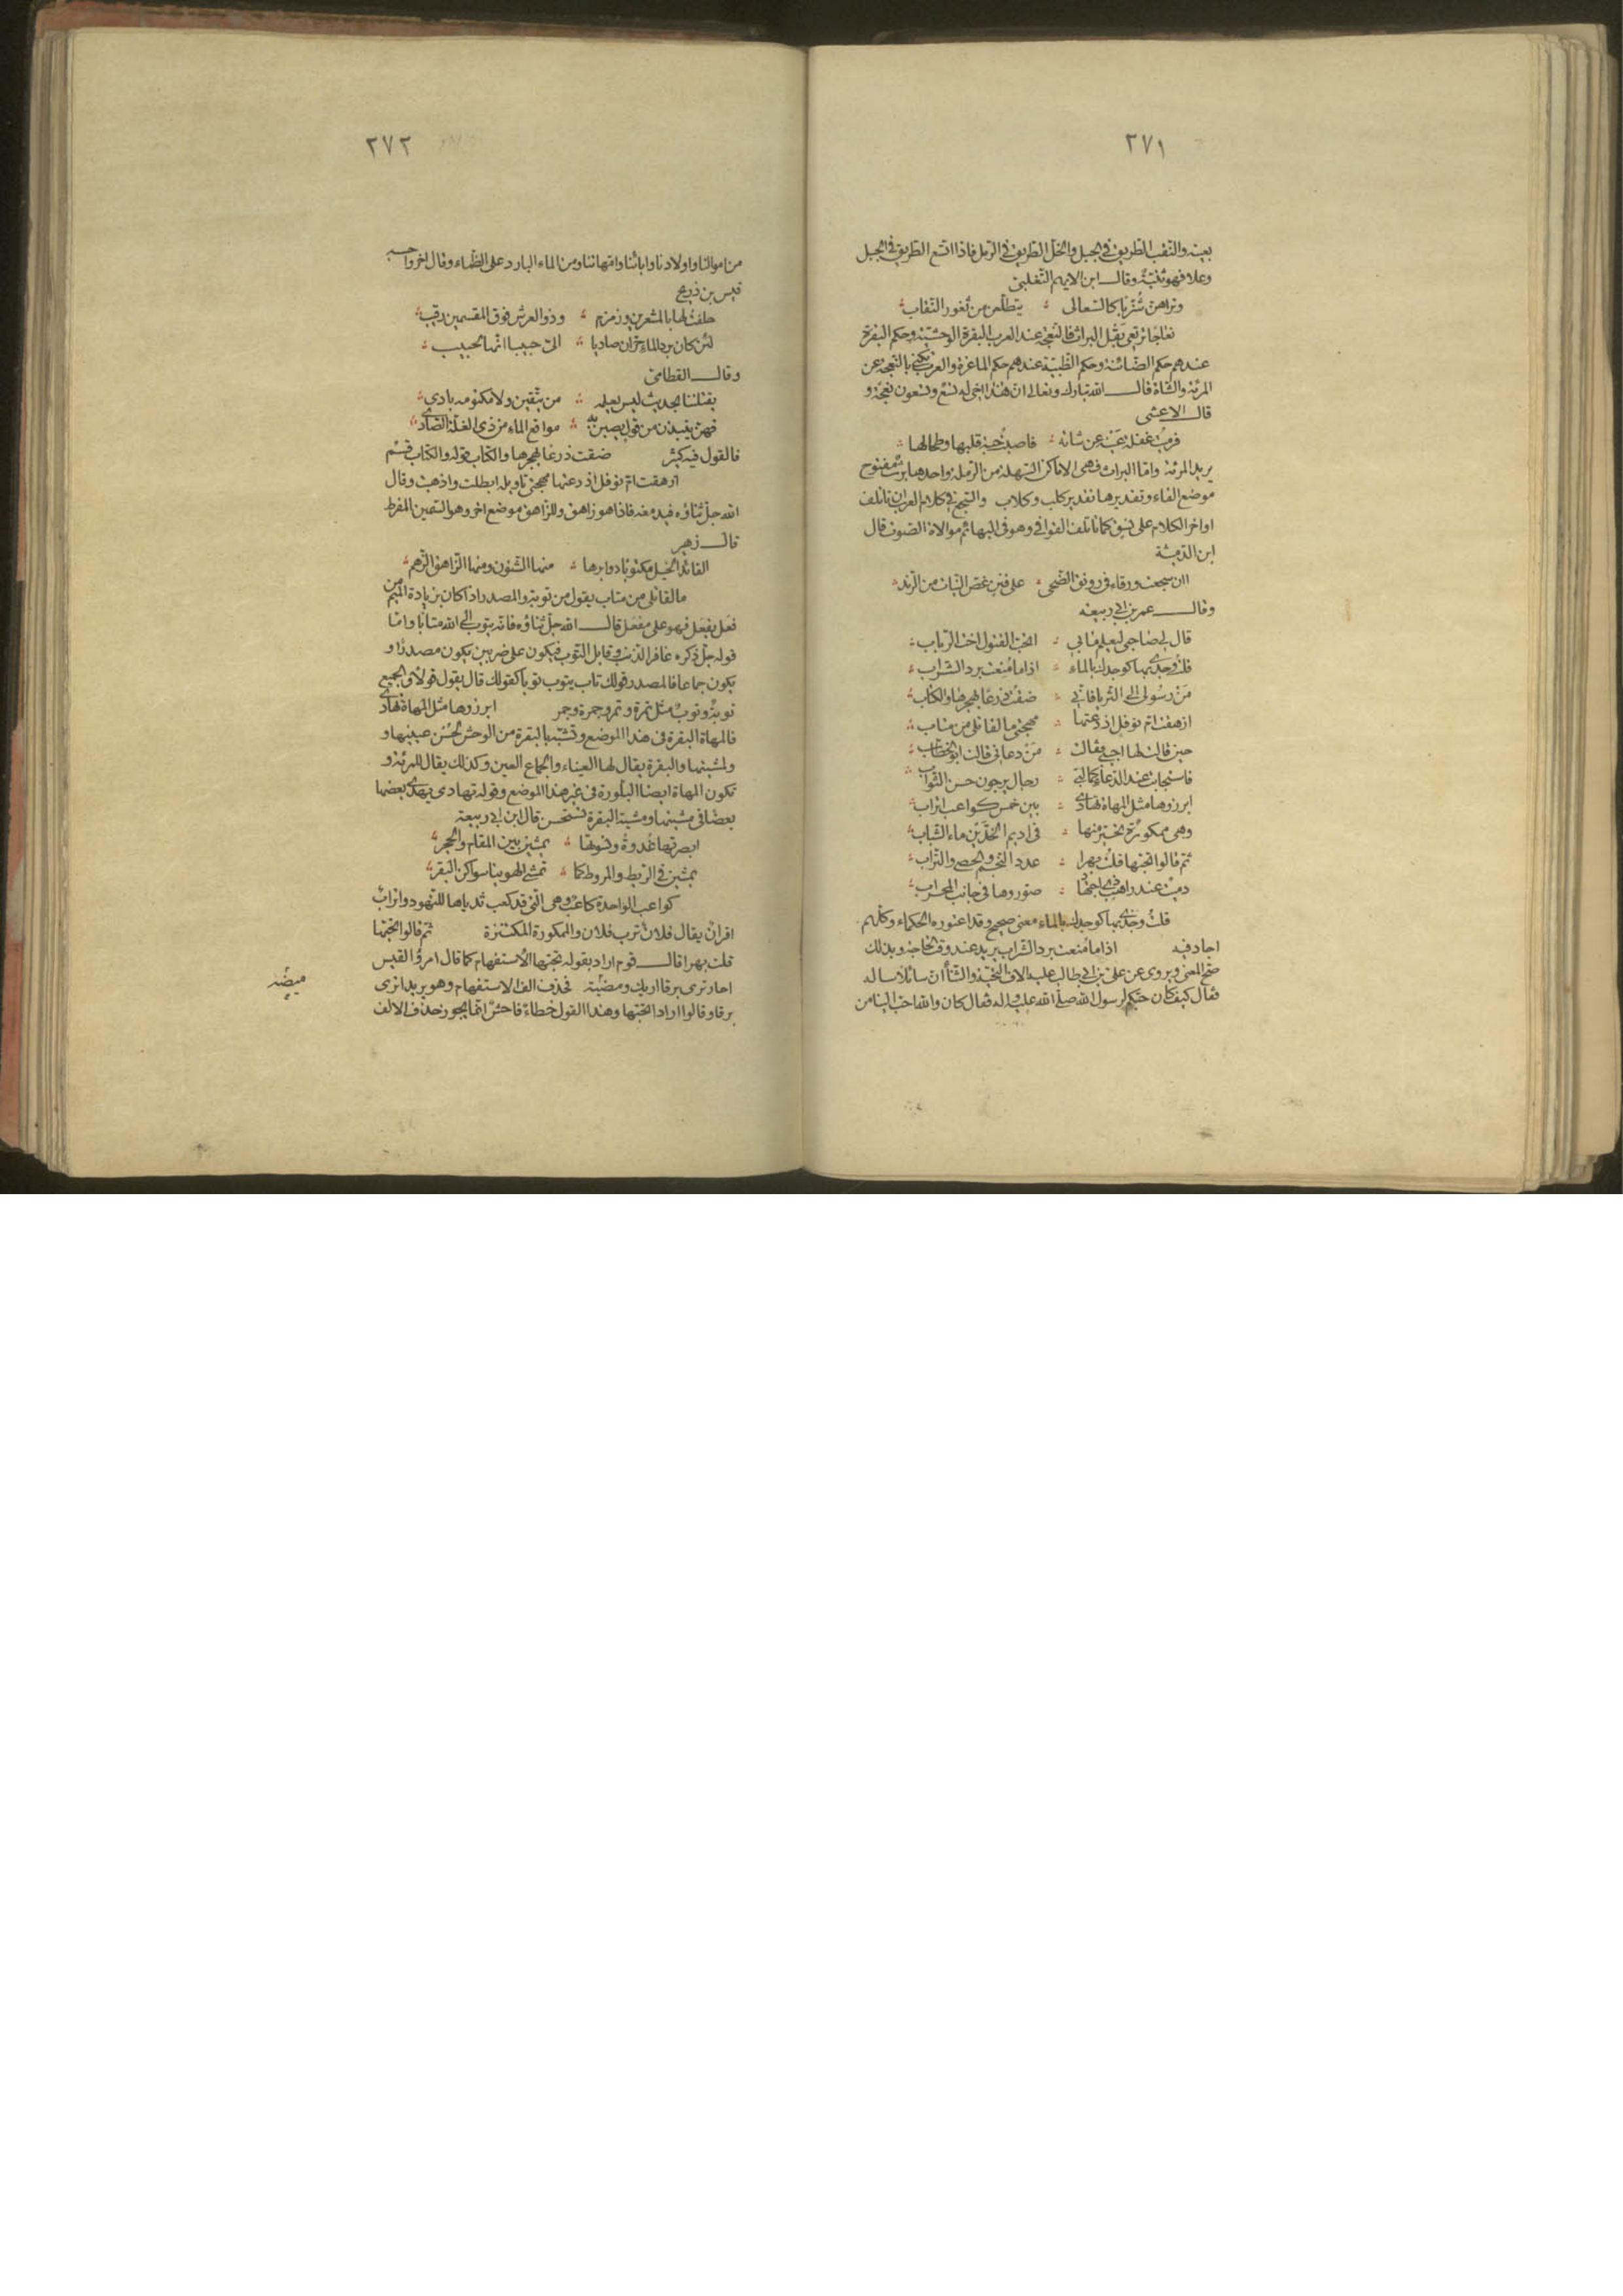 ٢٧١
بعينه والنقب الطريق في الجبل والخل الطريق في الرمل فاذا اتسع الطريق في الجبل
وعلا فهو ثنية وقال ابن الايهم التغلبي
وتراهن شزبا كالسعالى يتطلعن من ثغور النقاب
نعاجا ترتعي بقل البراث فالنعجة عند العرب البقرة الوحشية وحكم البقرة
عندهم حكم الضائنة وحكم الظبية عندهم حكم الماعزة والعرب تكني بالنعجة عن
المرئة والشاة قال الله تبارك وتعالى ان هذا اخي له تسع وتسعون نعجة و
قال الاعشى
فرميت غفلة عينه عن شاته فاصبت حبة قلبها وطحالها
يريد المرئة واما البراث فهي الاماكن السهلة من الرملة واحدها برث مفتوح
موضع الفاء وتقديرها تقدير كلب وكلاب والسجع في كلام العرب ان ياتلف
اواخر الكلام على نسق كما تاتلف القوافي وهو في البهائم موالاة الصوت قال
ابن الدمينة
اان سجعت ورقاء في رونق الضحى على فنن غض النبات من الرند
وقال عمر بن ابي ربيعة
قال لي صاحبي ليعلم ما بي اتحب القتول اخت الرباب
قلت وجدي بها كوجدك بالماء اذا ما منعت برد الشراب
من رسولي الى الثريا فاني ضقت ذرعا بهجرها والكتاب
ازهقت ام نوفل اذ دعتها مهجتي ما لقاتلي من متاب
حين قالت لها اجيبي فقالت من دعاني قالت ابو الخطاب
فاستجابت عند الدعاء كما لبى رجال يرجون حسن الثواب
ابرزوها مثل المهاة تهادى بين خمس كواعب اتراب
وهي ممكورة تحير منها في اديم الخدين ماء الشباب
ثم قالوا تحبها قلت بهرا عدد النجم والحصى والتراب
دمية عند راهب ذي اجتهاد صوروها في جانب المحراب
قلت وجدي بها كوجدك بالماء معنى صحيح وقد اعتوره الحكماء وكلهم
اجاد فيه اذا ما منعت برد الشراب يريد عند وقت الحاجة وبذلك
صح المعنى ويروى عن علي بن ابي طالب عليه الاف التحية والثناء ان سائلا ساله
فقال كيف كان حبكم لرسول الله صلى الله عليه واله فقال كان والله احب الينا من
٢٧٢
من اموالنا واولادنا وابائنا وامهاتنا ومن الماء البارد على الظماء وقال اخر واحسبه
قيس بن ذريح
حلفت لها بالمشعرين وزمزم وذو العرش فوق المقسمين رقيب
لئن كان برد الماء حران صاديا الي حبيبا انها لحبيب
وقال القطامي
يقتلننا بحديث ليس يعلمه من يتقين ولا مكنونه بادي
فهن ينبذن من قول يصبن به مواقع الماء من ذي الغلة الصادي
فالقول فيه كثير ضقت ذرعا بهجرها والكتاب قوله والكتاب قسم
ازهقت ام نوفل اذ دعتها مهجتي تاويله ابطلت واذهبت وقال
الله جل ثناؤه فيدمغه فاذا هو زاهق وللزاهق موضع اخر وهو السمين المفرط
قال زهير
القائد الخيل منكوبا دوابرها منها الشنون ومنها الزاهق الزهم
ما لقاتلي من متاب يقول من توبة والمصدر اذا كان بزيادة الميم من
فعل يفعل فهو على مفعل قال الله جل ثناؤه فانه يتوب الى الله متابا واما
قوله جل ذكره غافر الذنب وقابل التوب فيكون على ضربين يكون مصدرا و
يكون جماعا فالمصدر قولك تاب يتوب توبا كقولك قال يقول قولا والجميع
توبة وتوب مثل تمرة وتمر وجمرة وجمر ابرزوها مثل المهاة تهادى
فالمهاة البقرة في هذا الموضع وتشبه بالبقرة من الوحش لحسن عينيها و
ولمشيتها والبقرة يقال لها العيناء والجماع العين وكذلك يقال للمرئة و
تكون المهاة ايضا البلورة في غير هذا الموضع وقوله تهادى يهدى بعضها
بعضا في مشيتها ومشية البقرة تستحسن قال ابن ابي ربيعة
ابصرتها غدوة ونسوتها يمشين بين المقام والحجر
يمشين في الريط والمروط كما تمشي الهوينا سواكن البقر
كواعب الواحدة كاعب وهي التي قد كعب ثدياها للنهود واتراب
اقران يقال فلان ترب فلان والممكورة المكتنزة ثم قالوا تحبها
قلت بهرا قال قوم اراد بقوله تحبها الاستفهام كما قال امرؤ القيس
احار ترى برقا اريك وميضه فحذف الف الاستفهام وهو يريد اترى
برقا وقالوا اراد اتحبها وهذا القول خطاء فاحش انما يجوز حذف الالف